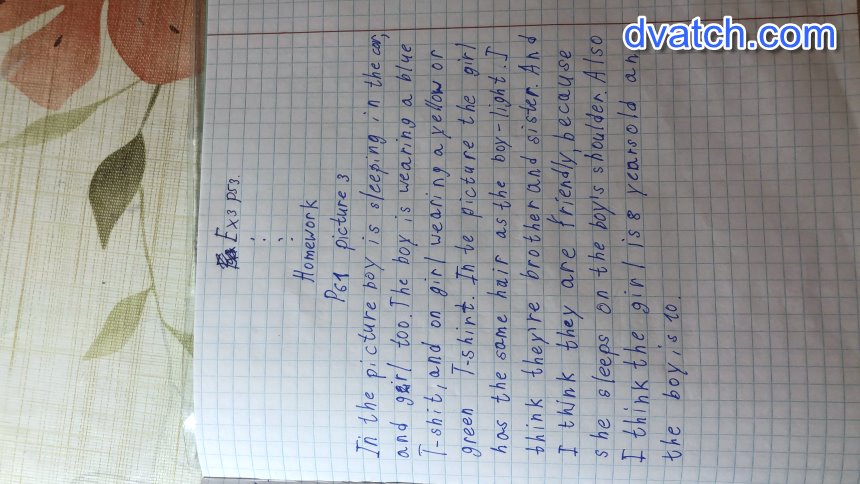 Ex3 p53.
Homework
P61 picture 3
In the picture boy is sleeping in the car,
and girl too. The boy is wearing a blue
T-shit, and on girl wearing a yellow or
green T-shirt. In te picture the girl
has the same hair as the boy-light. I
think they're brother and sister. And
I think they are friendly, because
she sleeps on the boy's shoulder. Also
I think the girl is 8 years old an
the boy is 10.
dvatch.com